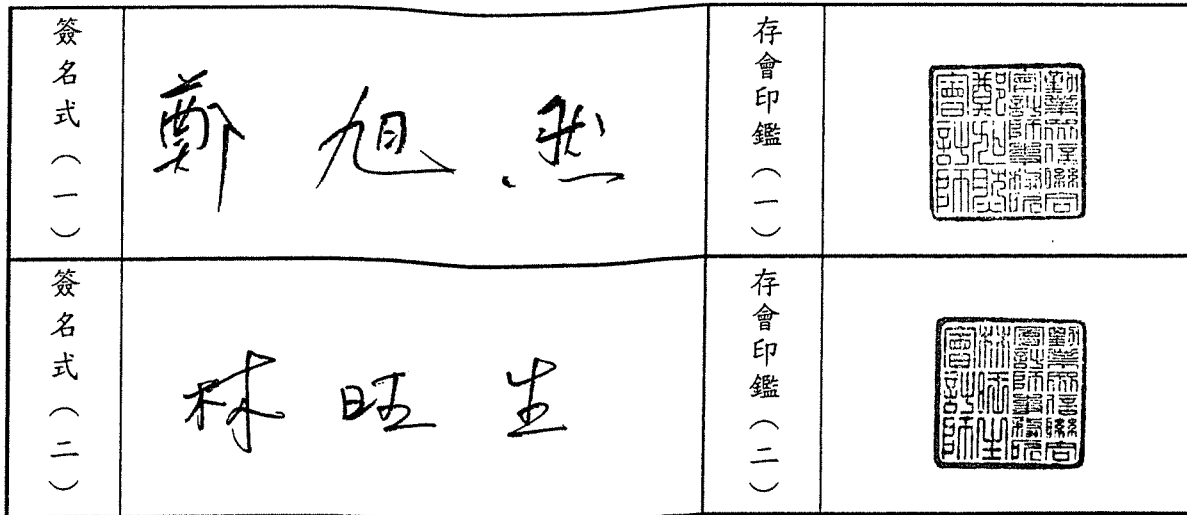 簽名式（一）
鄭旭然
存會印鑑（一）
勤業眾信聯合
會計師事務所
鄭旭然
會計師
簽名式（二）
林旺生
存會印鑑（二）
勤業眾信聯合
會計師事務所
林旺生
會計師